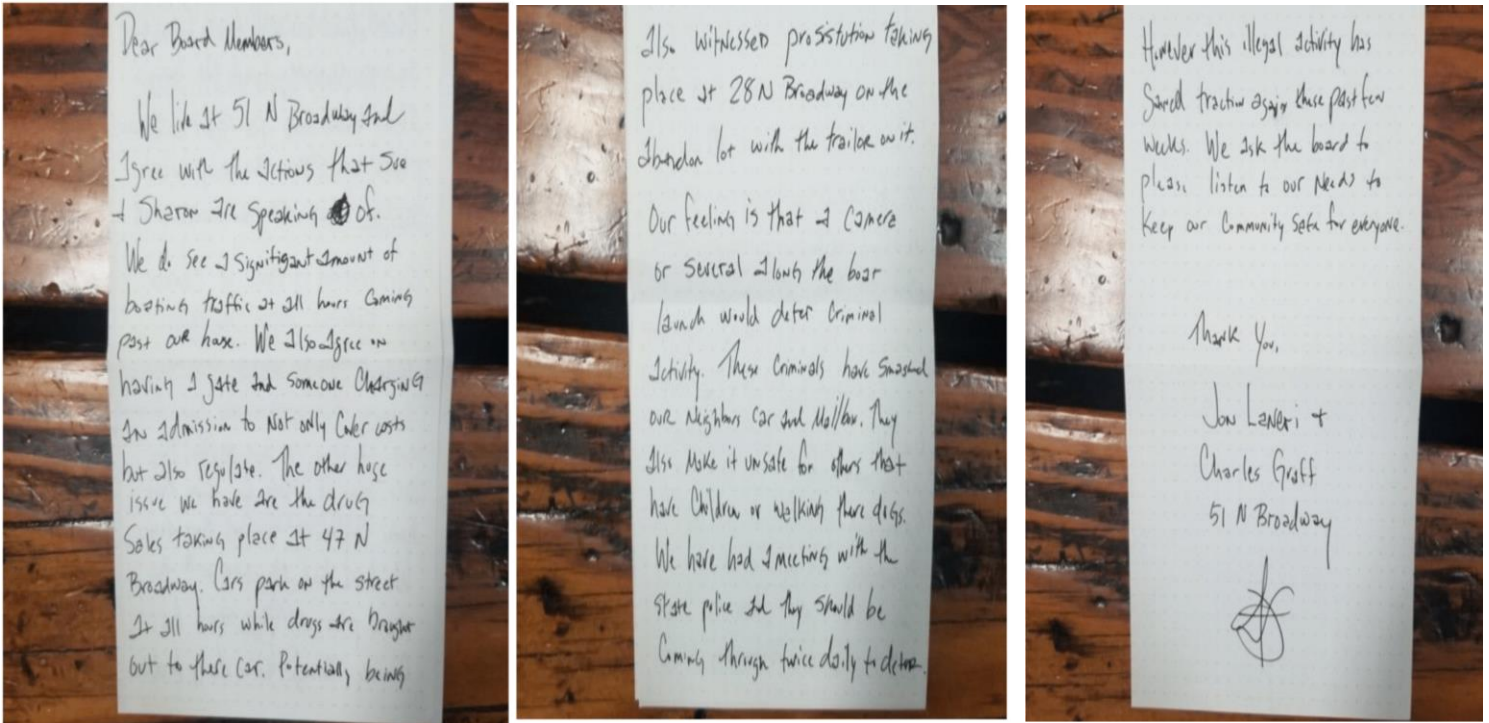 Dear Board Members,
We live at 51 N Broadway and
agree with the actions that Sue
+ Sharon are speaking of.
We do see a signifigant amount of
boating traffic at all hours coming
past our house. We also agree on
having a gate and someone charging
an admission to not only cover costs
but also regulate. The other huge
issue we have are the drug
sales taking place at 47 N
Broadway. Cars park on the street
at all hours while drugs are brought
out to there car. Potentially being
also witnessed prosistution taking
place at 28 N Broadway on the
abandon lot with the trailor on it.
Our feeling is that a camera
or several along the boat
launch would deter criminal
activity. These criminals have smashed
our neighbors car and mailbox. They
also make it unsafe for others that
have children or walking there dogs.
We have had a meeting with the
state police and they should be
coming through twice daily to deter.
However this illegal activity has
traction again these past few
weeks. We ask the board to
please listen to our needs to
keep our community safe for everyone.
Thank you,
Jon Laneri +
Charles Graff
51 N Broadway